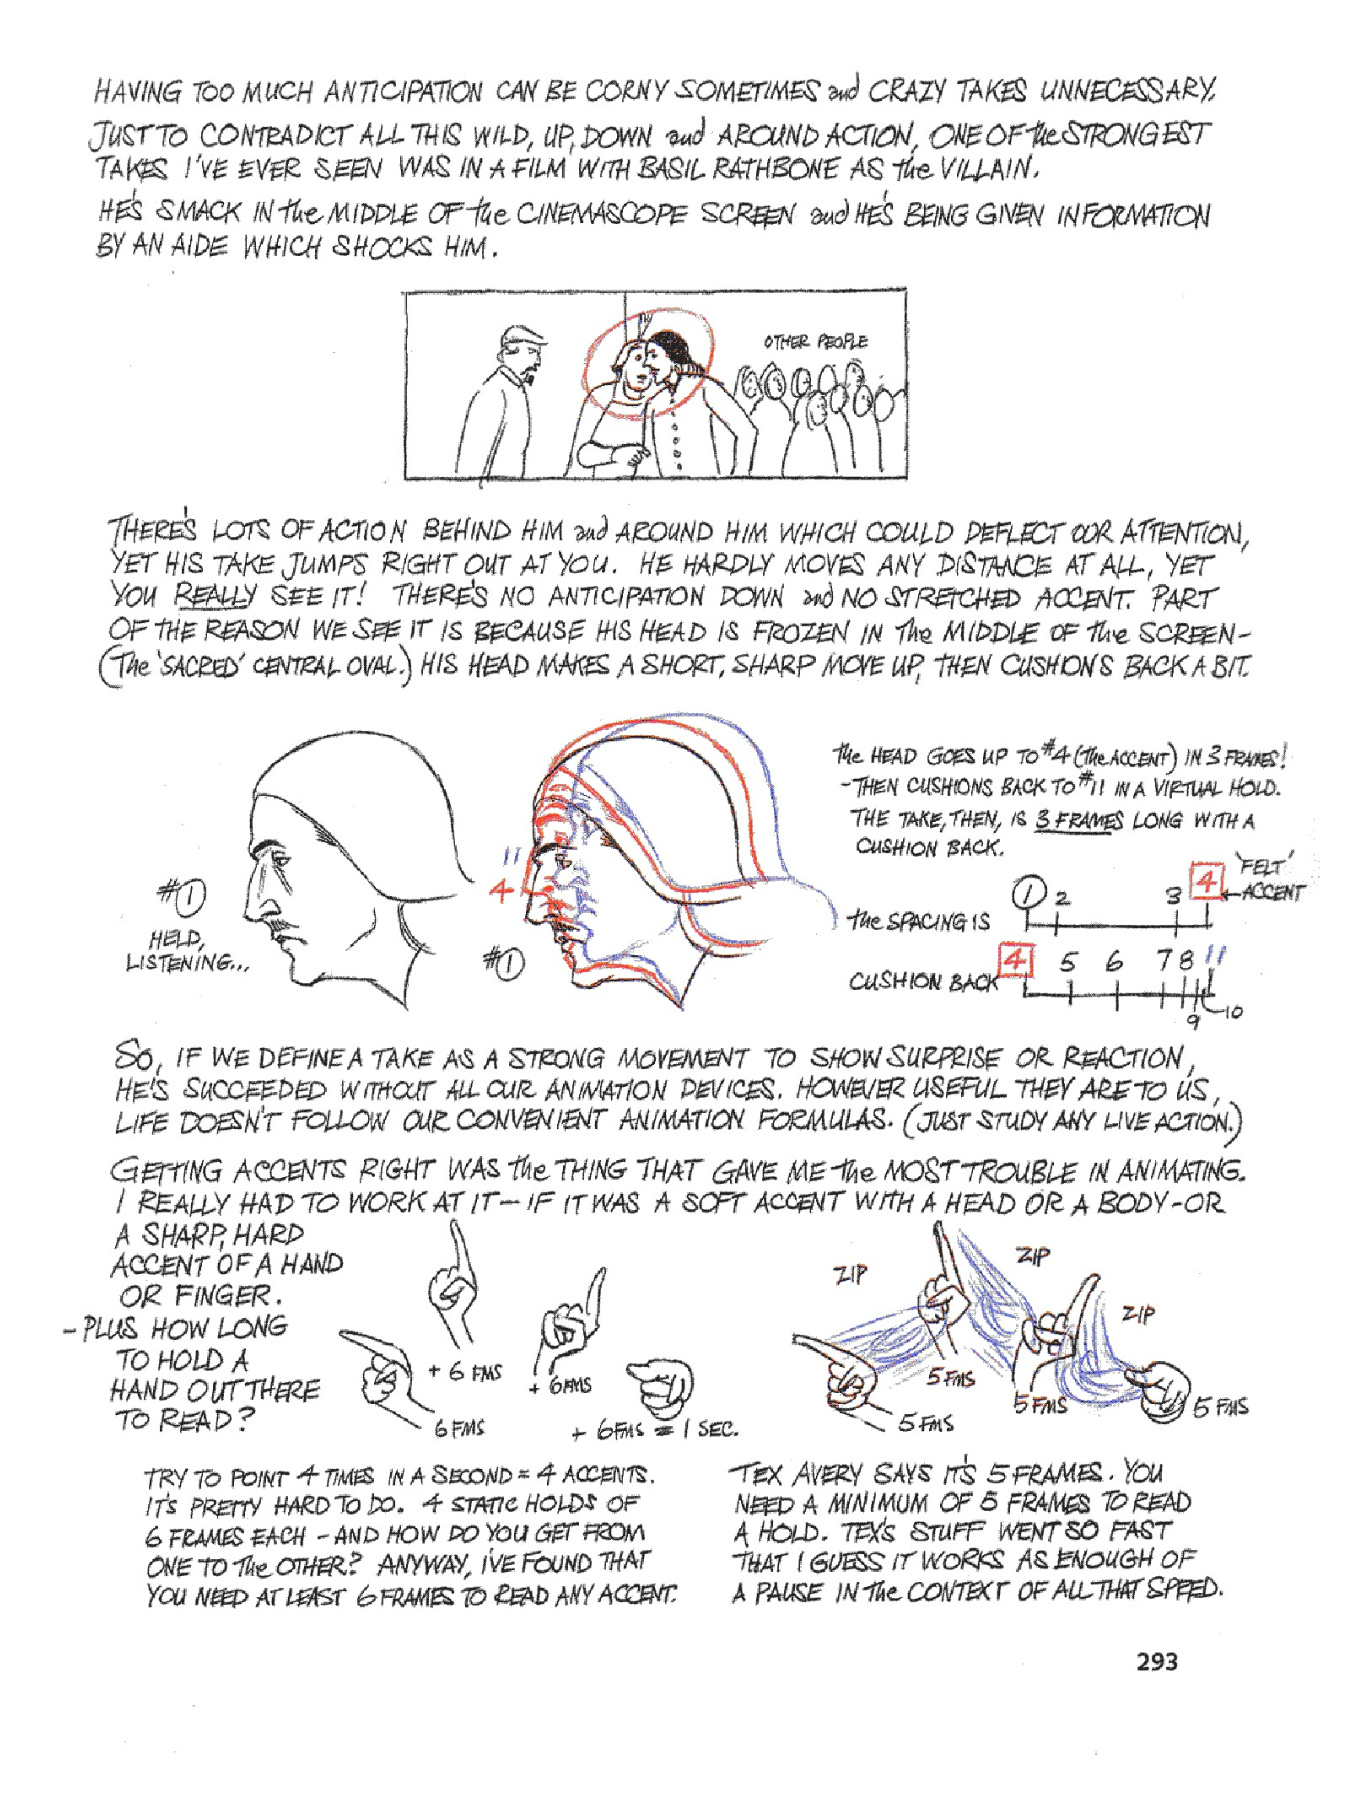 HAVING TOO MUCH ANTICIPATION CAN BE CORNY SOMETIMES and CRAZY TAKES UNNECESSARY.
JUST TO CONTRADICT ALL THIS WILD, UP, DOWN and AROUND ACTION, ONE OF the STRONGEST
TAKES I'VE EVER SEEN WAS IN A FILM WITH BASIL RATHBONE AS the VILLAIN.
HE'S SMACK IN the MIDDLE OF the CINEMASCOPE SCREEN and HE'S BEING GIVEN INFORMATION
BY AN AIDE WHICH SHOCKS HIM.
OTHER PEOPLE
THERE'S LOTS OF ACTION BEHIND HIM and AROUND HIM WHICH COULD DEFLECT OUR ATTENTION,
YET HIS TAKE JUMPS RIGHT OUT AT YOU. HE HARDLY MOVES ANY DISTANCE AT ALL, YET
YOU REALLY SEE IT! THERE'S NO ANTICIPATION DOWN and NO STRETCHED ACCENT. PART
OF THE REASON WE SEE IT IS BECAUSE HIS HEAD IS FROZEN IN the MIDDLE OF the SCREEN-
(the 'SACRED' CENTRAL OVAL.) HIS HEAD MAKES A SHORT, SHARP MOVE UP, THEN CUSHIONS BACK A BIT.
#1
HELD,
LISTENING...
11
4
#1
the HEAD GOES UP TO #4 (the ACCENT) IN 3 FRAMES!
-THEN CUSHIONS BACK TO #11 IN A VIRTUAL HOLD.
THE TAKE, THEN, IS 3 FRAMES LONG WITH A
CUSHION BACK.
the SPACING IS
1 2 3 4
'FELT'
ACCENT
CUSHION BACK
4 5 6 7 8 11
9 10
SO, IF WE DEFINE A TAKE AS A STRONG MOVEMENT TO SHOW SURPRISE OR REACTION,
HE'S SUCCEEDED WITHOUT ALL OUR ANIMATION DEVICES. HOWEVER USEFUL THEY ARE TO US,
LIFE DOESN'T FOLLOW OUR CONVENIENT ANIMATION FORMULAS. (JUST STUDY ANY LIVE ACTION.)
GETTING ACCENTS RIGHT WAS the THING THAT GAVE ME the MOST TROUBLE IN ANIMATING.
I REALLY HAD TO WORK AT IT – IF IT WAS A SOFT ACCENT WITH A HEAD OR A BODY - OR
A SHARP, HARD
ACCENT OF A HAND
OR FINGER.
- PLUS HOW LONG
TO HOLD A
HAND OUT THERE
TO READ?
6 FMS
+ 6 FMS
+ 6FMS
+ 6FMS = 1 SEC.
ZIP
ZIP
ZIP
5 FMS
5 FMS
5 FMS
5 FMS
TRY TO POINT 4 TIMES IN A SECOND = 4 ACCENTS.
IT'S PRETTY HARD TO DO. 4 STATIC HOLDS OF
6 FRAMES EACH - AND HOW DO YOU GET FROM
ONE TO the OTHER? ANYWAY, I'VE FOUND THAT
YOU NEED AT LEAST 6 FRAMES TO READ ANY ACCENT.
TEX AVERY SAYS IT'S 5 FRAMES. YOU
NEED A MINIMUM OF 5 FRAMES TO READ
A HOLD. TEX'S STUFF WENT SO FAST
THAT I GUESS IT WORKS AS ENOUGH OF
A PAUSE IN the CONTEXT OF ALL THAT SPEED.
293